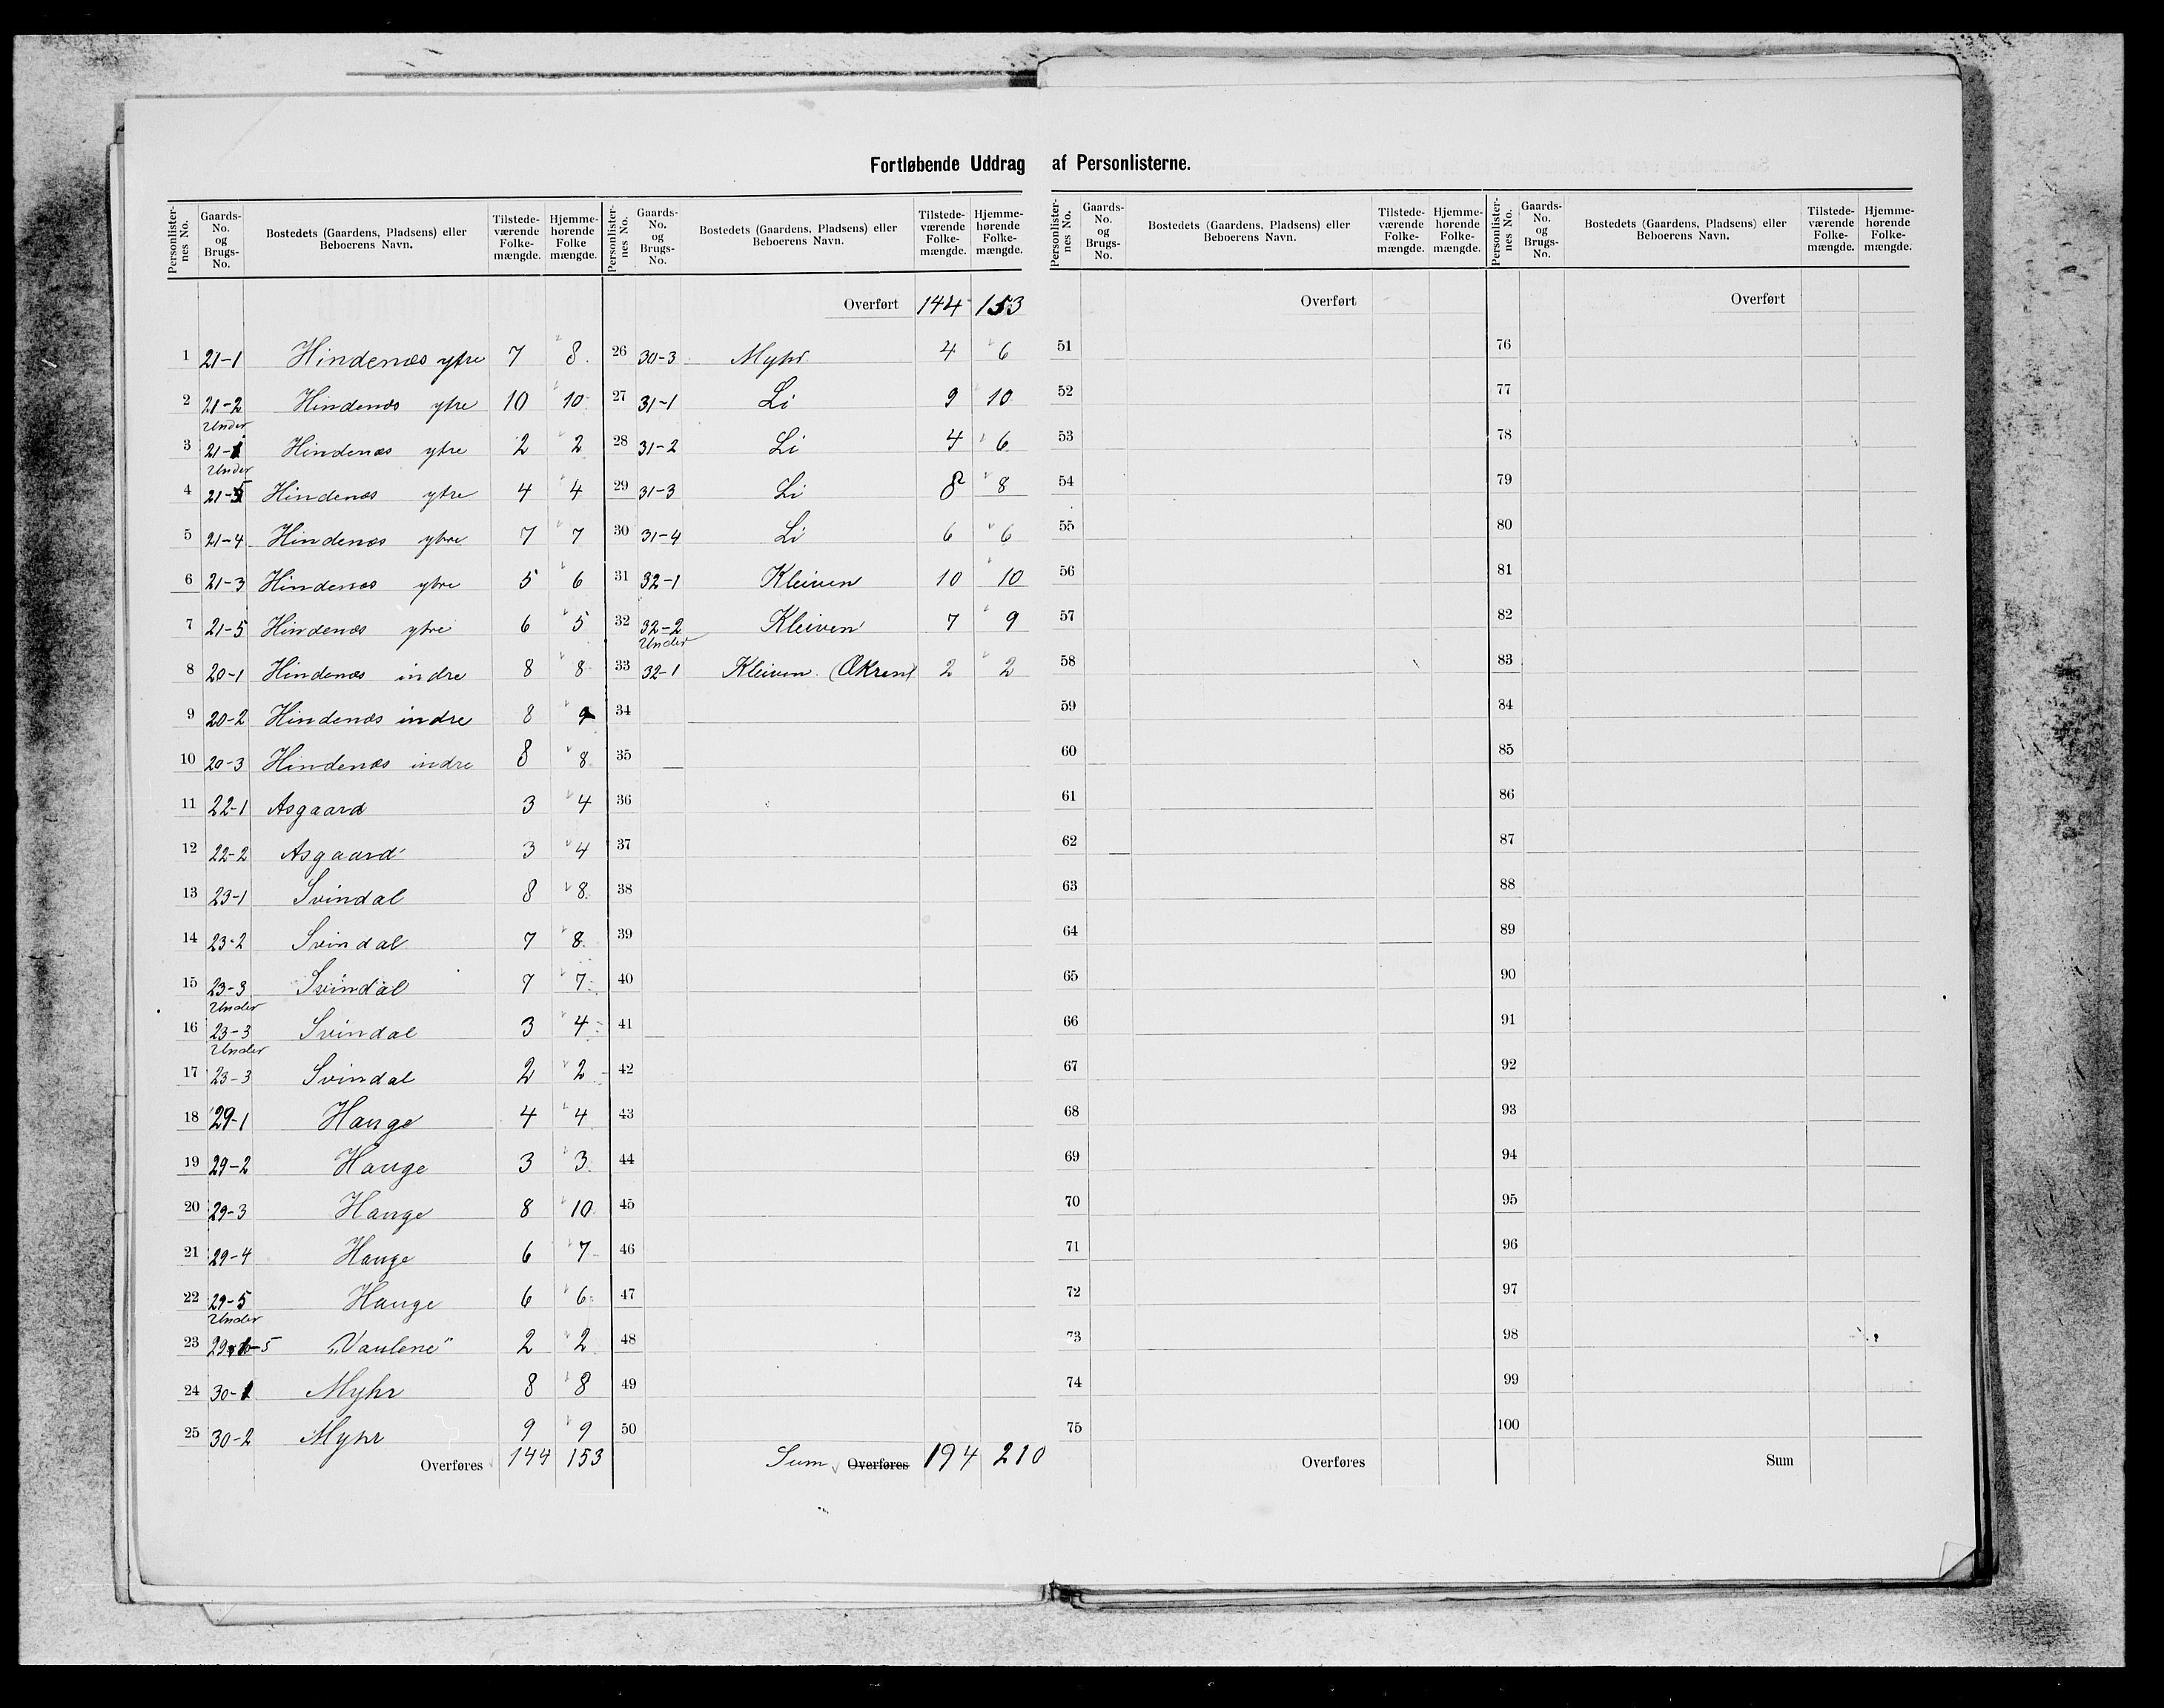 Fortløbende Uddrag af Personlisterne.
Personlisternes No. Gaards-No. og Brugs-No. Bostedets (Gaardens, Pladsens) eller Beboerens Navn. Tilstedeværende Folkemængde. Hjemmehørende Folkemængde.
1 21-1 Hindenæs ytre 7 8
2 21-2 Hindenæs ytre 10 10
Under
3 21-1 Hindenæs ytre 2 2
Under
4 21-5 Hindenæs ytre 4 4
5 21-4 Hindenæs ytre 7 7
6 21-3 Hindenæs ytre 5 6
7 21-5 Hindenæs ytre 6 5
8 20-1 Hindenæs indre 8 8
9 20-2 Hindenæs indre 8 9
10 20-3 Hindenæs indre 8 8
11 22-1 Asgaard 3 4
12 22-2 Asgaard 3 4
13 23-1 Svindal 8 8
14 23-2 Svindal 7 8
15 23-3 Svindal 7 7
Under
16 23-3 Svindal 3 4
Under
17 23-3 Svindal 2 2
18 29-1 Hauge 4 4
19 29-2 Hauge 3 3
20 29-3 Hauge 8 10
21 29-4 Hauge 6 7
22 29-5 Hauge 6 6
Under
23 29-5 „Vaulene" 2 2
24 30-1 Myhr 8 8
25 30-2 Myhr 9 9
Overføres 144 153
Personlisternes No. Gaards-No. og Brugs-No. Bostedets (Gaardens, Pladsens) eller Beboerens Navn. Tilstedeværende Folkemængde. Hjemmehørende Folkemængde.
Overført 144 153
26 30-3 Myhr 4 6
27 31-1 Li 9 10
28 31-2 Li 4 6
29 31-3 Li 8 8
30 31-4 Li 6 6
31 32-1 Kleiven 10 10
32 32-2 Kleiven 7 9
Under
33 32-1 Kleiven. (Økren) 2 2
34
35
36
37
38
39
40
41
42
43
44
45
46
47
48
49
50
Sum Overføres 194 210
Personlisternes No. Gaards-No. og Brugs-No. Bostedets (Gaardens, Pladsens) eller Beboerens Navn. Tilstedeværende Folkemængde. Hjemmehørende Folkemængde.
Overført
51
52
53
54
55
56
57
58
59
60
61
62
63
64
65
66
67
68
69
70
71
72
73
74
75
Overføres
Personlisternes No. Gaards-No. og Brugs-No. Bostedets (Gaardens, Pladsens) eller Beboerens Navn. Tilstedeværende Folkemængde. Hjemmehørende Folkemængde.
Overført
76
77
78
79
80
81
82
83
84
85
86
87
88
89
90
91
92
93
94
95
96
97
98
99
100
Sum